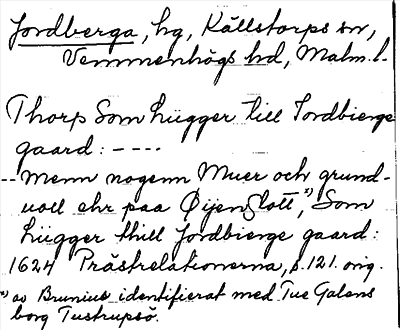 Jordberga, hg, Källstorps sn,
Vemmenhögs hd, Malm. l.
Thorp Som Liigger till Jordbierge
gaard: ----
-- Menn nogenn Muer och grund-
voll ehr paa Øijenslott,ˣ⁾ Som
Liigger thill Jordbierge gaard:
1624 Prästrelationerna, s. 121. orig.
ˣ⁾ av Brunius identifierat med Tue Galens
borg Tustrupsö.